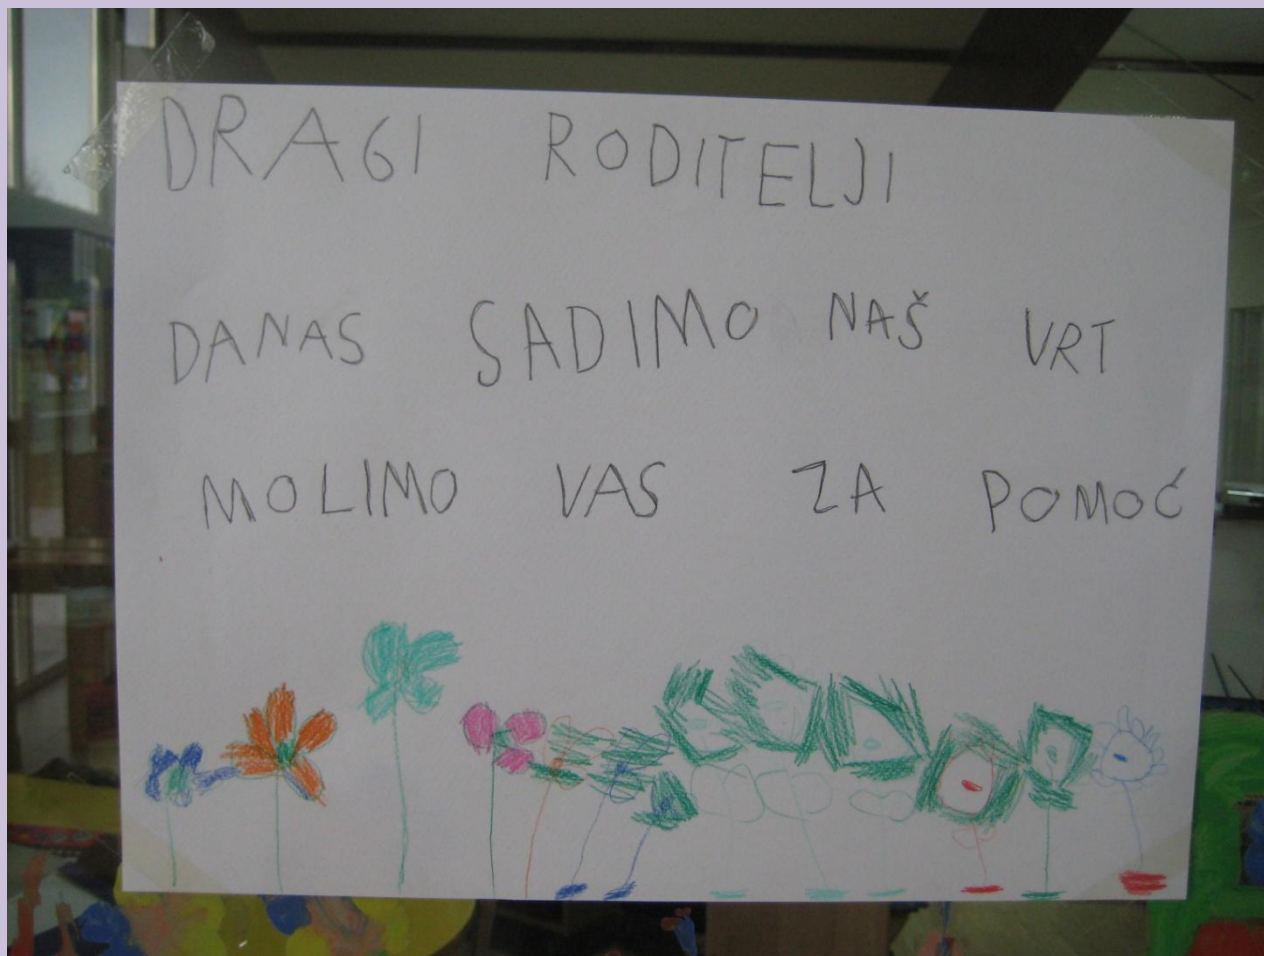 DRAGI RODITELJI
DANAS SADIMO NAŠ VRT
MOLIMO VAS ZA POMOĆ